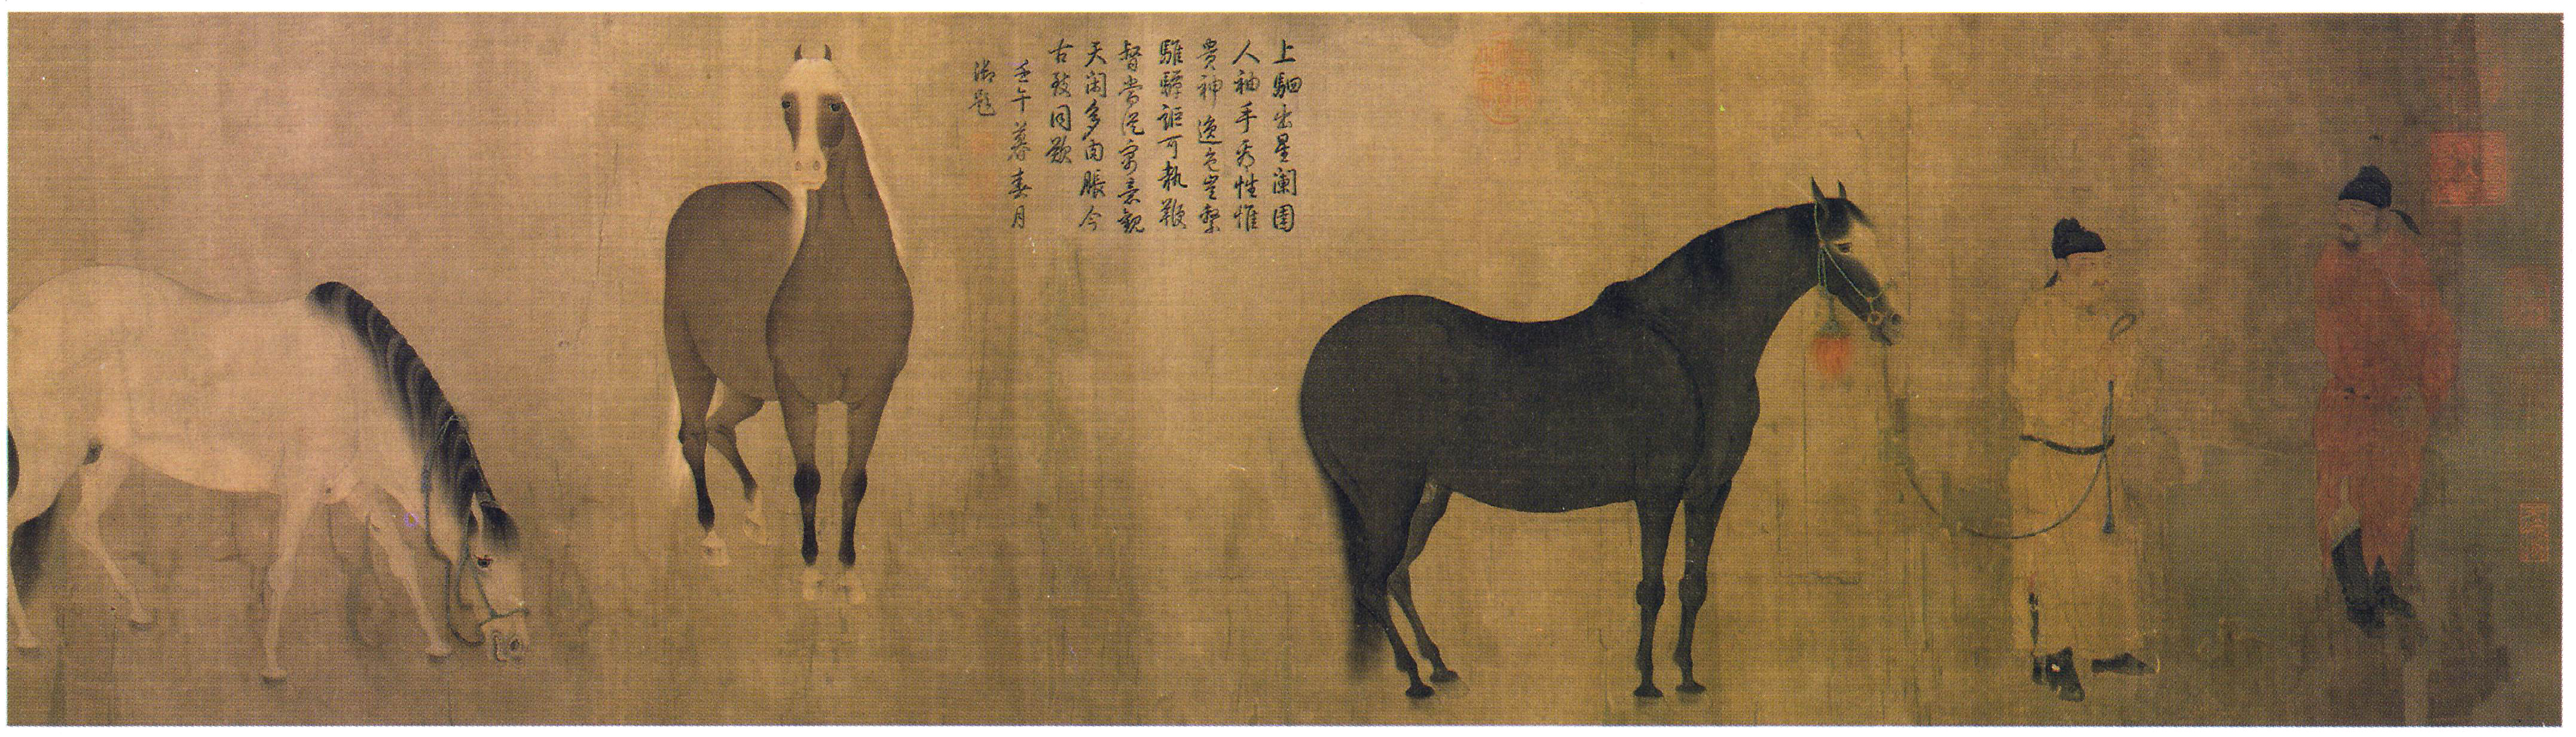 上駟出星闌圉
人袖手看性惟
貴神逸色豈繫
騅驒詎可執鞭
督當從寓意觀
天閑多肉脹今
古致同歎
壬午暮春月
御題